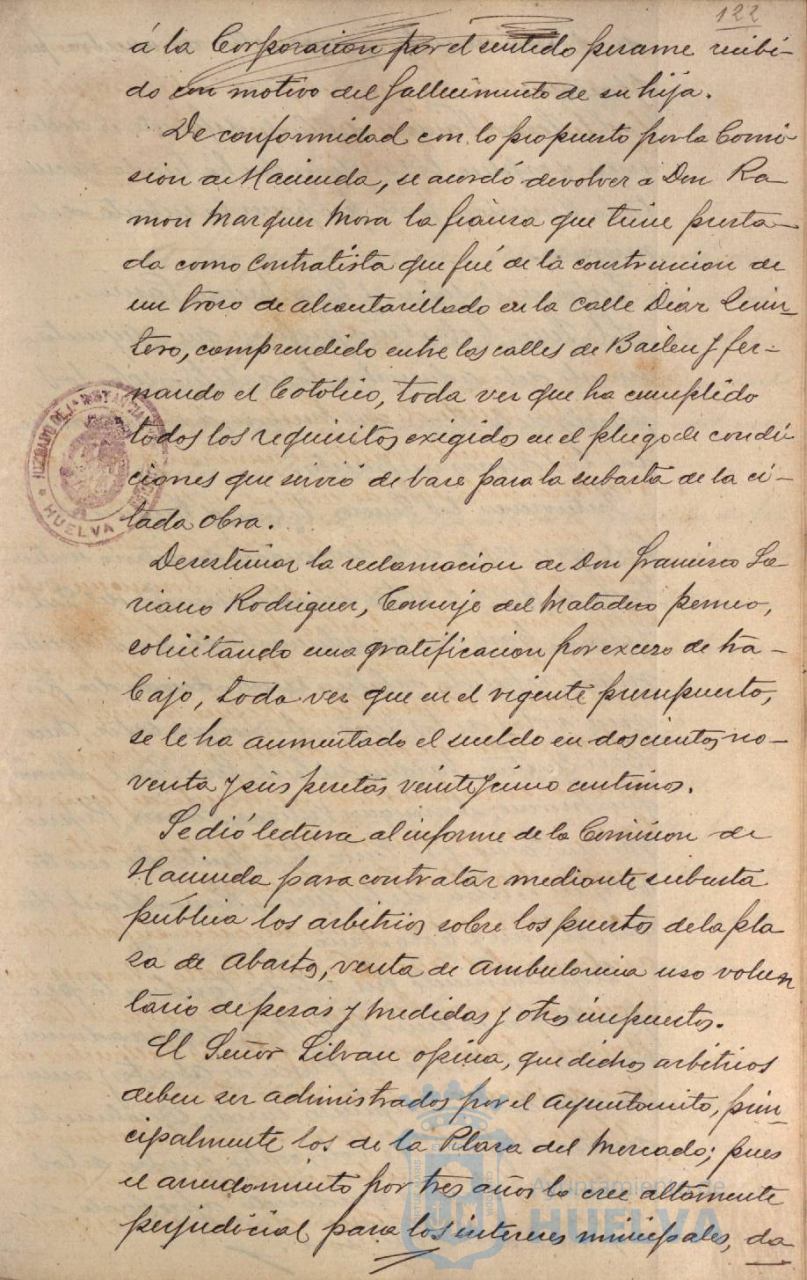 122
á la Corporacion por el sentido pesame recibi-
do con motivo del fallecimiento de su hija.
De conformidad con lo propuesto por la Comi-
sion de Hacienda, se acordó devolver á Don Ra-
mon Marquez Mora la fianza que tiene presta-
da como contratista que fué de la construccion de
un trozo de alcantarillado en la calle Diaz Quin-
tero, comprendido entre las calles de Bailen y Fer-
nando el Católico, toda vez que ha cumplido
todos los requisitos exigidos en el pliego de condi-
ciones que sirvió de base para la subasta de la ci-
tada obra.
Desestimar la reclamacion de Don Francisco So-
riano Rodriguez, Conserje del Matadero
solicitando una gratificacion por exceso de tra-
bajo, toda vez que en el vigente presupuesto,
se le ha aumentado el sueldo en doscientas no-
venta y seis pesetas veinte y cinco centimos.
Se dió lectura al informe de la Comision de
Hacienda para contratar mediante subasta
pública los arbitrios sobre los puestos de la pla-
za de Abastos, venta de Ambulancia uso volun
tario de pesas y medidas y otros impuestos.
El Señor Silvan opina, que dichos arbitrios
deben ser administrados por el Ayuntamito, prin-
cipalmente los de la Plaza del Mercado; pues
el arrendamiento por tres años lo cree altamente
perjudicial para los intereses municipales, da
HUELVA
Ayuntamiento de
HUELVA